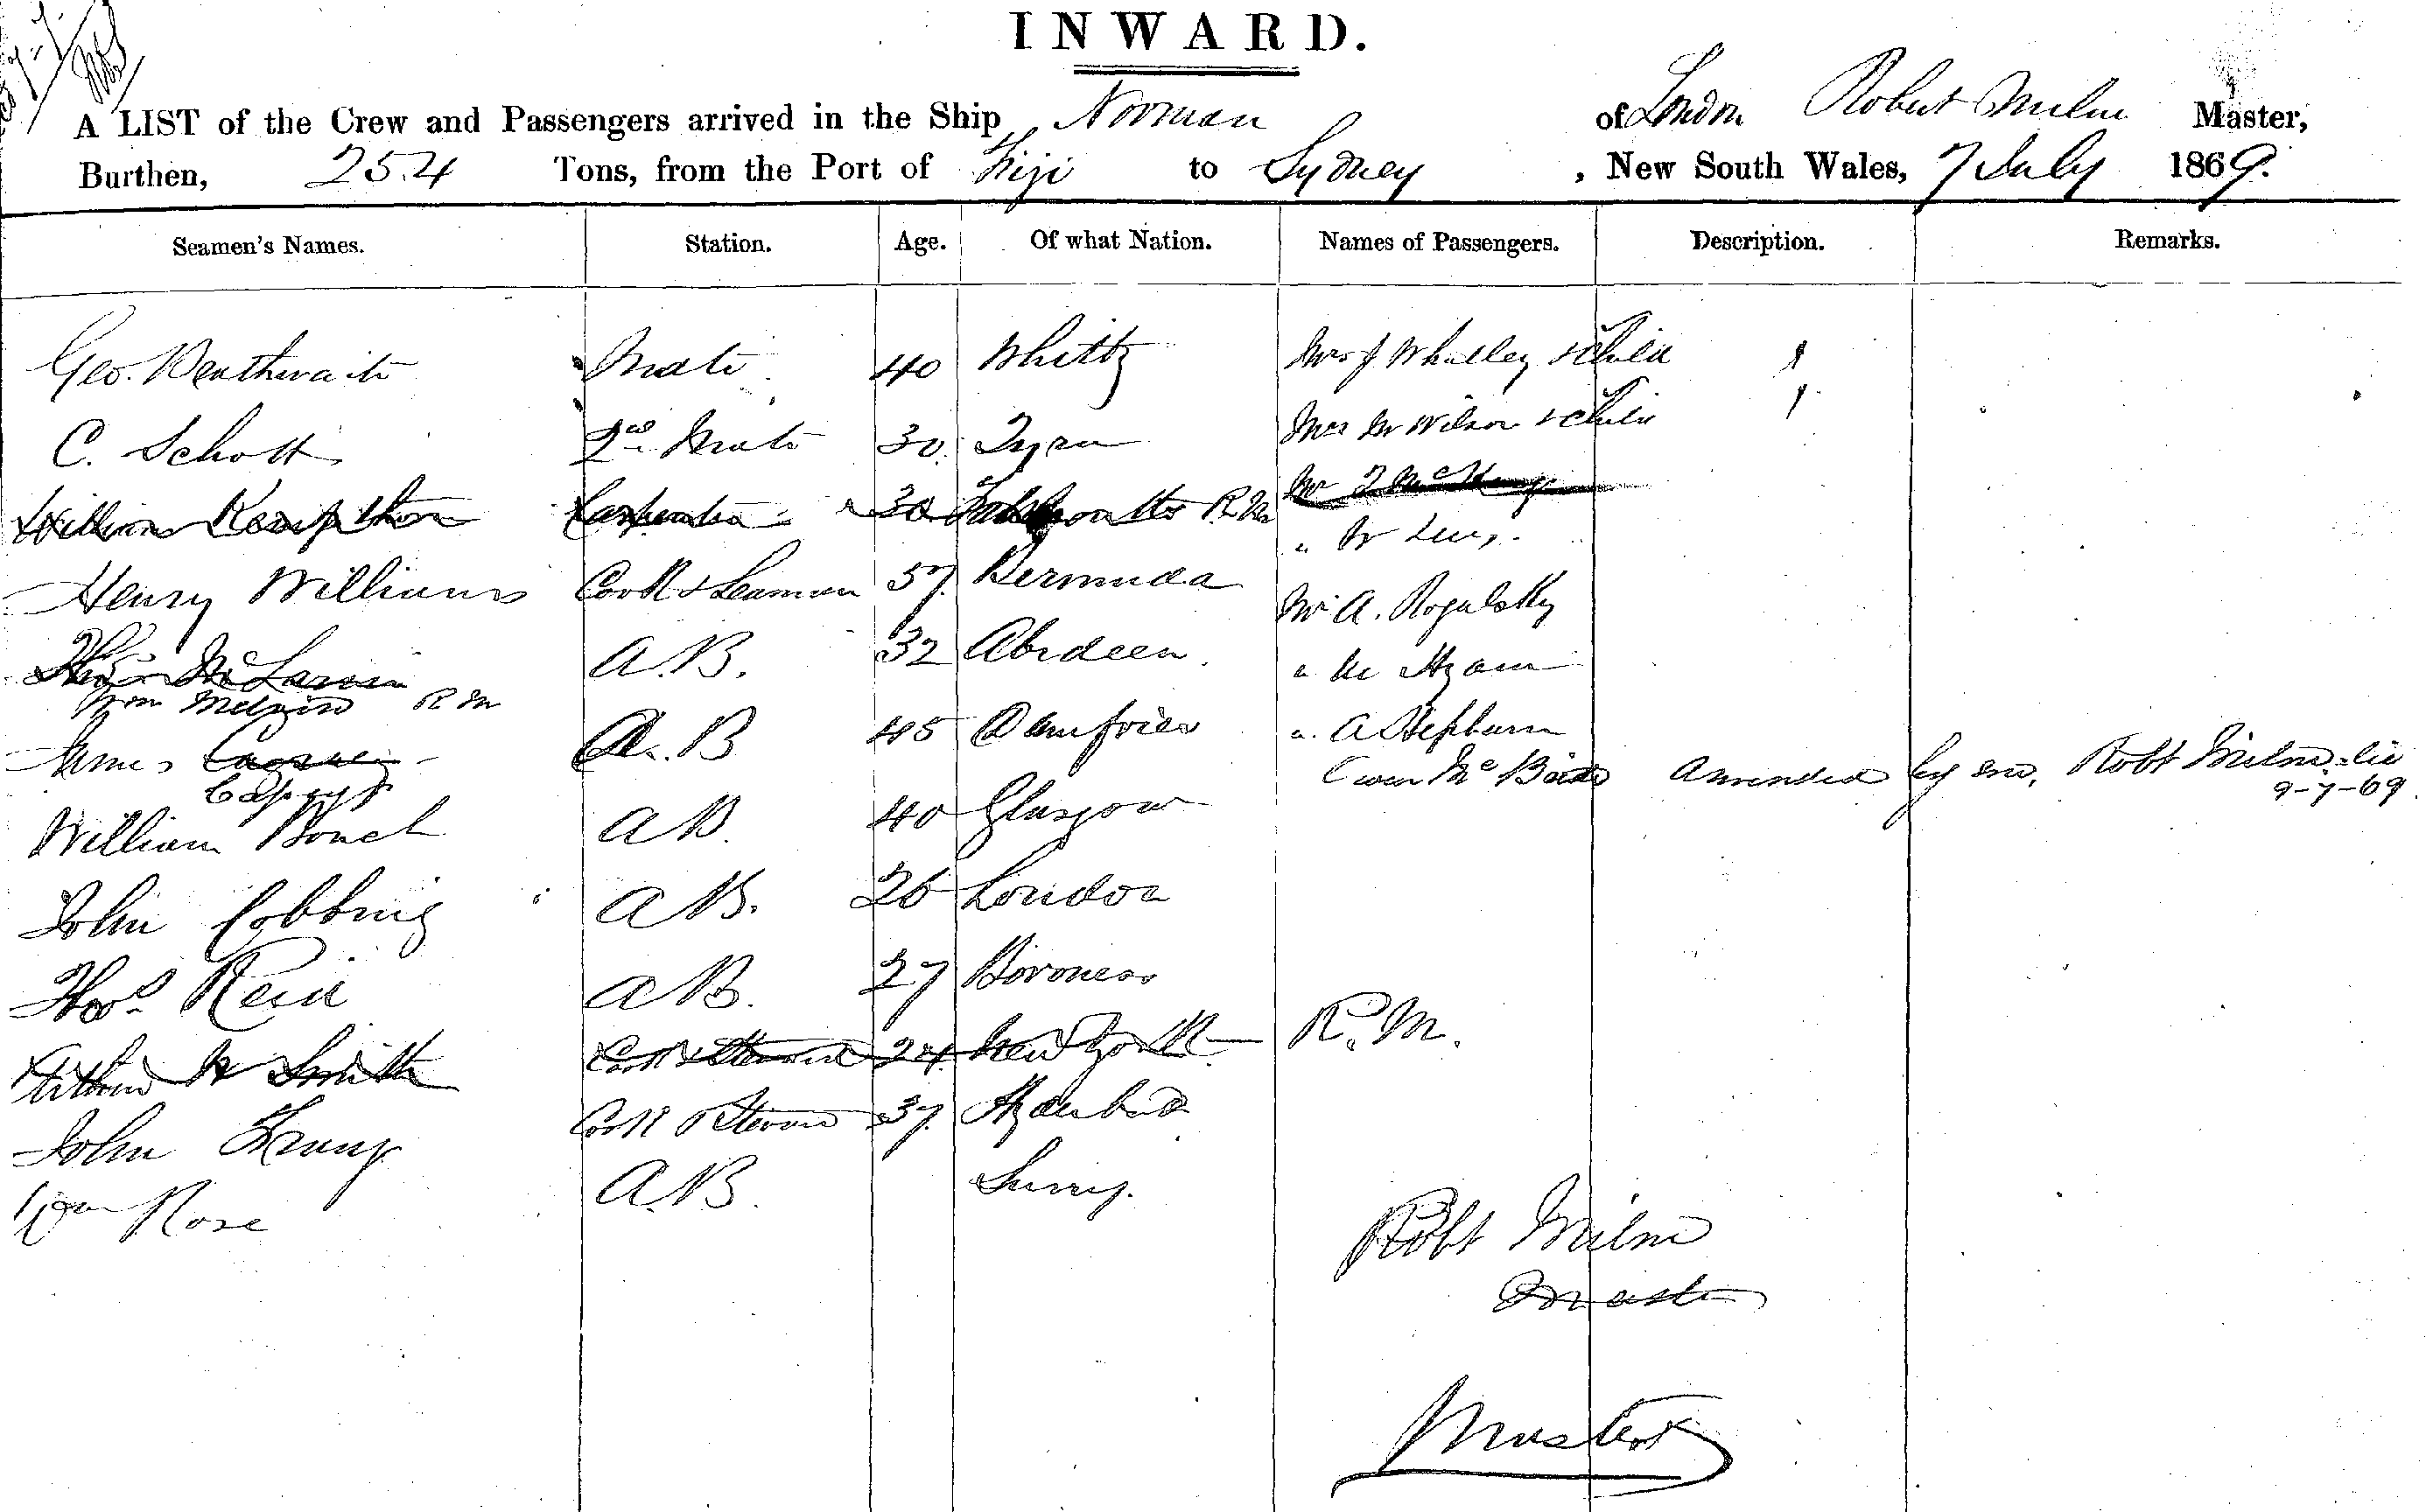 INWARD.
A LIST of the Crew and Passengers arrived in the Ship Norman of London Robert Milne Master,
Burthen, 254 Tons, from the Port of Fiji to Sydney, New South Wales, 7 July 1869.
Seamen's Names. Station. Age. Of what Nation. Names of Passengers. Description. Remarks.
Geo. Mate 40 Whitby Mrs J Whalley & Child 1
C. Schott 2nd Mate 30 Mrs W Wilson & Child 1
William Carpenter 30 R M Mr
" W
Henry Williams Cook & Seaman 57 Bermuda Mr A. Rogalsky
Thos McLaren A.B. 32 Abrdeen "
Wm R M
James A.B 45 Dumfries " A Hepburn
McBride Amended by me, Robt Milne
9-7-69
William A B. 40 Glasgow
John Cobbing A B. 26 London
Thos Reid A B. 27 Boroness
W Smith Cook & Steward 24 New York R. M.
John Cook & Steward 37
Wm Rose A.B. Surry.
Robt Milne
Master
Master